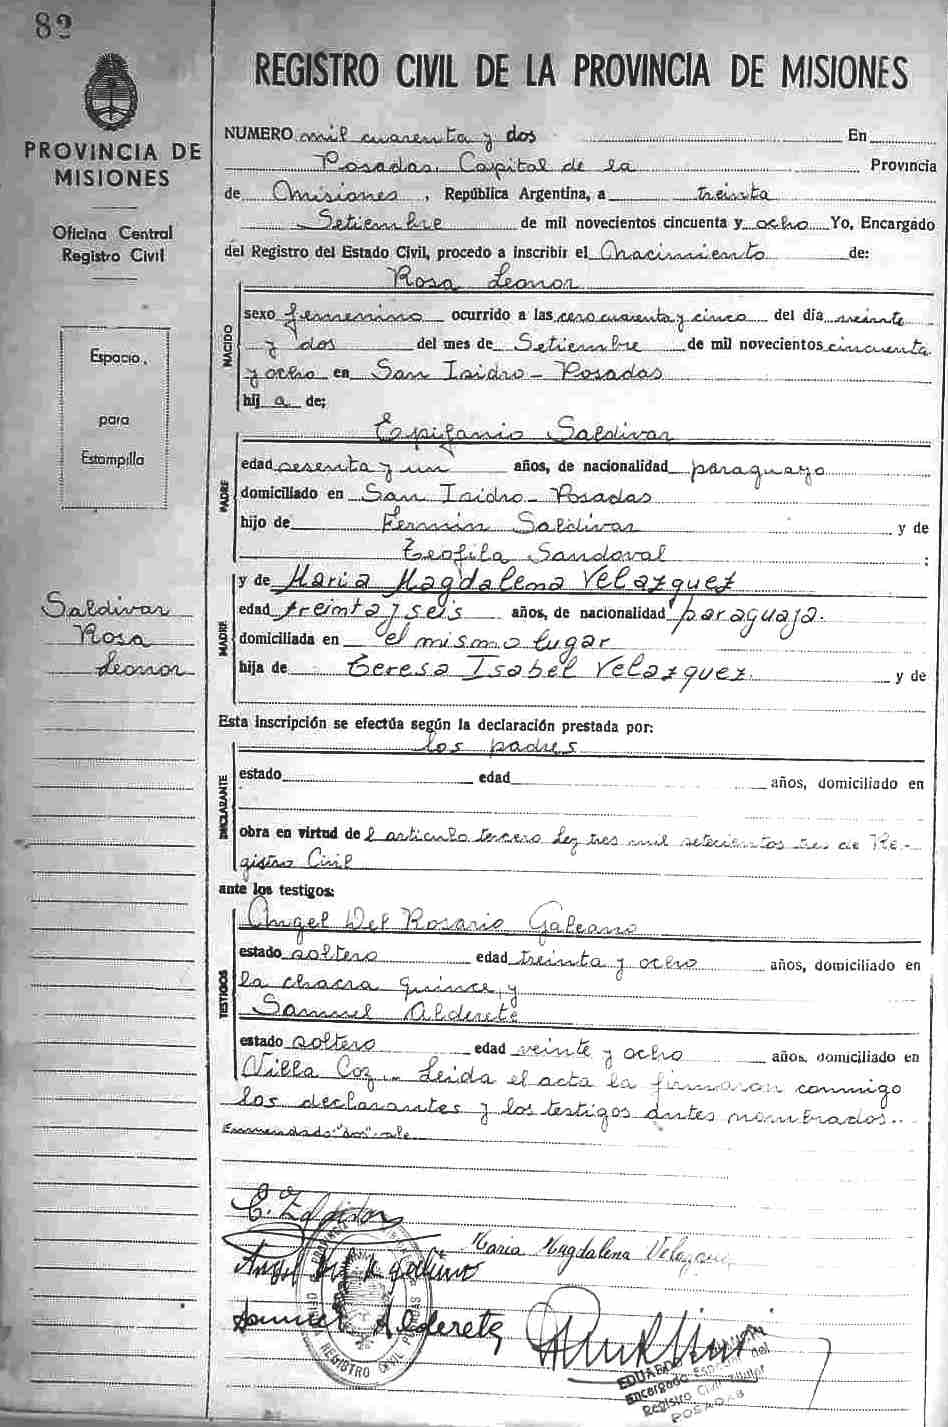 82
PROVINCIA DE
MISIONES
Oficina Central
Registro Civil
Espacio
para
Estampilla
Saldivar
Rosa
Leonor
REGISTRO CIVIL DE LA PROVINCIA DE MISIONES
NUMERO mil cuarenta y dos En
Posadas, Capital de la Provincia
de Misiones, República Argentina, a treinta
Setiembre de mil novecientos cincuenta y ocho Yo, Encargado
del Registro del Estado Civil, procedo a inscribir el Nacimiento de:
Rosa Leonor
NACIDO
sexo femenino ocurrido a las cero cuarenta y cinco del día veinte
y dos del mes de Setiembre de mil novecientos cincuenta
y ocho en San Isidro - Posadas
hij a de:
Epifanio Saldivar
PADRE
edad sesenta y un años, de nacionalidad paraguayo
domiciliado en San Isidro - Posadas
hijo de Fermin Saldivar y de
Teofila Sandoval ;
y de Maria Magdalena Velazquez
MADRE
edad treinta y seis años, de nacionalidad paraguaja.
domiciliada en el mismo lugar
hija de Teresa Isabel Velazquez. y de
Esta inscripción se efectúa según la declaración prestada por:
los padres
DECLARANTE
estado edad años, domiciliado en
obra en virtud de l articulo tercero Ley tres mil setecientos tres de Re-
gistro Civil
ante los testigos:
Angel Del Rosario Galeano
TESTIGOS
estado soltero edad treinta y ocho años, domiciliado en
la chacra quince, y
Samuel Alderete
estado soltero edad veinte y ocho años, domiciliado en
Villa Coz.- Leida el acta la firmaron conmigo
los declarantes y los testigos antes nombrados.-
Enmendado: vale
Maria Magdalena Velazquez
Angel Galeano
Samuel Alderete
REGISTRO CIVIL
EDUARDO
Encargado
Registro Civil Titular
POSADAS